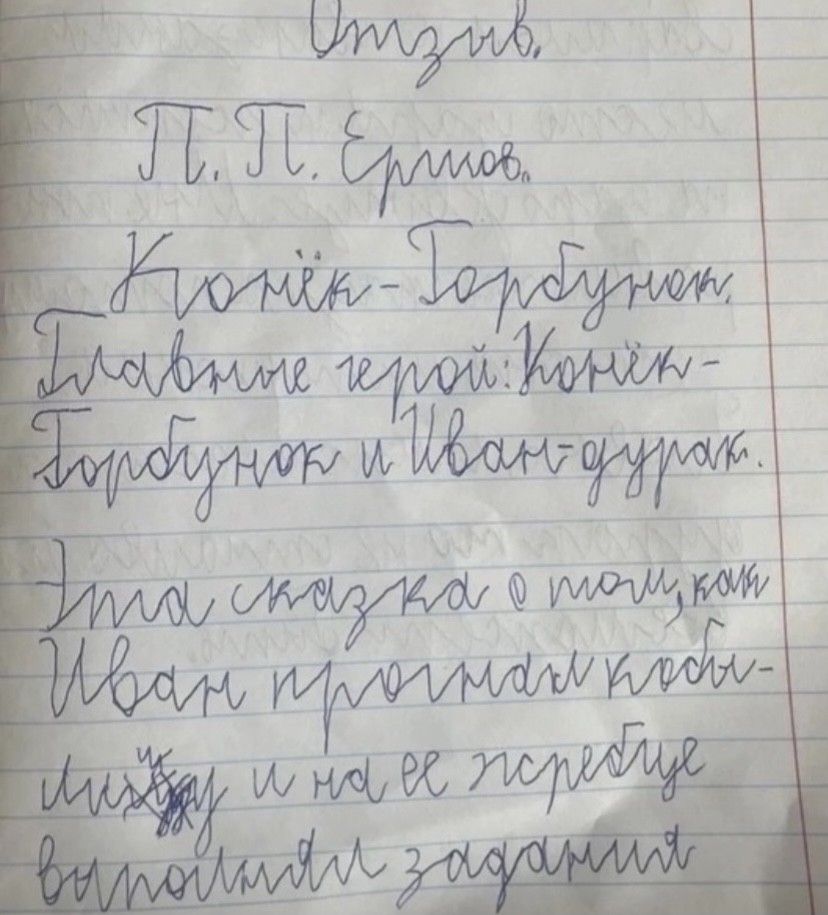 Отзыв.
П. П. Ершов.
Конёк-Горбунок.
Главные герой: Конёк-
Горбунок и Иван-дурак.
Эта сказка о том, как
Иван прогнал кобы-
лицу и на ее жребце
выполнял задания